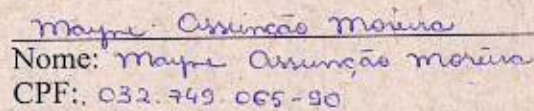 Mayne Assunção Moreira
Nome: Mayne Assunção Moreira
CPF:. 032.749.065-90